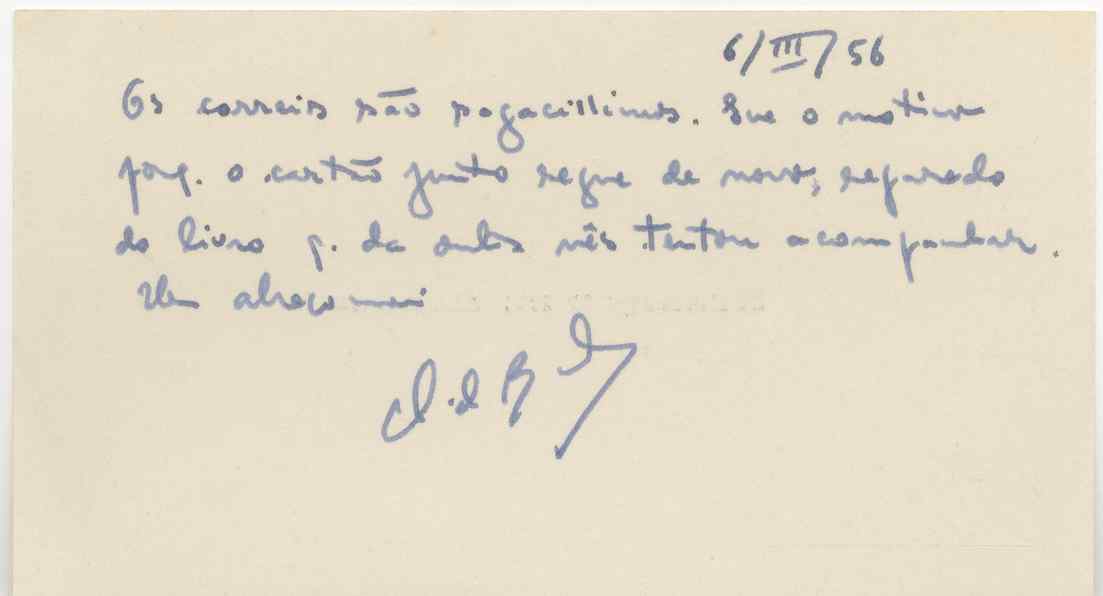 6/III/56
Os correios são sagacíssimos. Eis o motivo
porq. o cartão junto segue de novo, separado
do livro q. da outra vês tentou acompanhar.
Um abraço mais